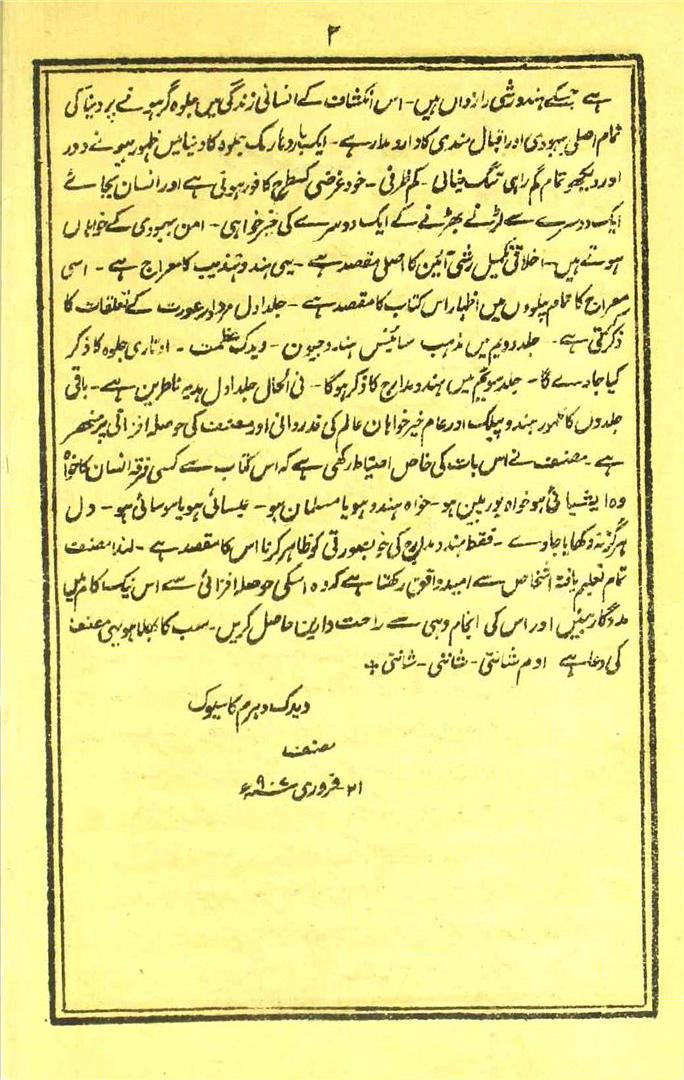 ۳
ہے جسکے ہندو رشی رازداں ہیں۔ اس انکشاف کے انسانی زندگی میں جلوہ گر ہونے پر دنیا کی
تمام اصلی بہبودی اور اقبال مندی کا دارومدار ہے۔ ایک بار و نارمک جلوہ کا دنیا میں ظہور ہونے دو
اور دیکھو تمام گمراہی تنگ خیالی۔ کم ظرفی۔ خود غرضی کسطرح کافور ہوتی ہے اور انسان بجائے
ایک دوسرے سے لڑنے بھڑنے کے ایک دوسرے کی خیر خواہی۔ امن بہبودی کے خواہاں
ہوتے ہیں۔ اخلاقی تکمیل رشی آئین کا اصلی مقصد ہے۔ یہی ہندو تہذیب کا معراج ہے۔ اسی
معراج کا تمام پہلووں میں اظہار اس کتاب کا مقصد ہے۔ جلد اول مرد اور عورت کے تعلقات کا
ذکر کرتی ہے۔ جلد دویم میں مذہب سائینس ہندو جیون۔ ویدک عظمت۔ اوتاری جلوہ کا ذکر
کیا جاوے گا۔ جلد سویم میں ہندو مدارج کا ذکر ہوگا۔ فی الحال جلد اول ہدیہ ناظرین ہے۔ باقی
جلدوں کا ظہور ہندو پبلک اور عام خیر خواہان عالم کی قدردانی اور مصنف کی حوصلہ افزائی پر منحصر
ہے۔ مصنف نے اس بات کی خاص احتیاط رکھی ہے کہ اس کتاب سے کسی فرقہ انسان کا خواہ
وہ ایشیائی ہو خواہ یورپین ہو۔ خواہ ہندو ہو یا مسلمان ہو۔ عیسائی ہو یا موسائی ہو۔ دل
ہرگز نہ دکھایا جاوے۔ فقط ہندو مدارج کی خوبصورتی کو ظاہر کرنا اس کا مقصد ہے۔ لہذا مصنف
تمام تعلیم یافتہ اشخاص سے امید واثق رکھتا ہے کہ وہ اسکی حوصلہ افزائی سے اس نیک کام میں
مددگار بنیں اور اس کی انجام دہی سے راحت دارین حاصل کریں۔ سب کا بھلا ہو یہی مصنف
کی دعا ہے اوم شانتی۔ شانتی۔ شانتی +
ویدک دہرم کا سیوک
مصنف
۲۱ فروری